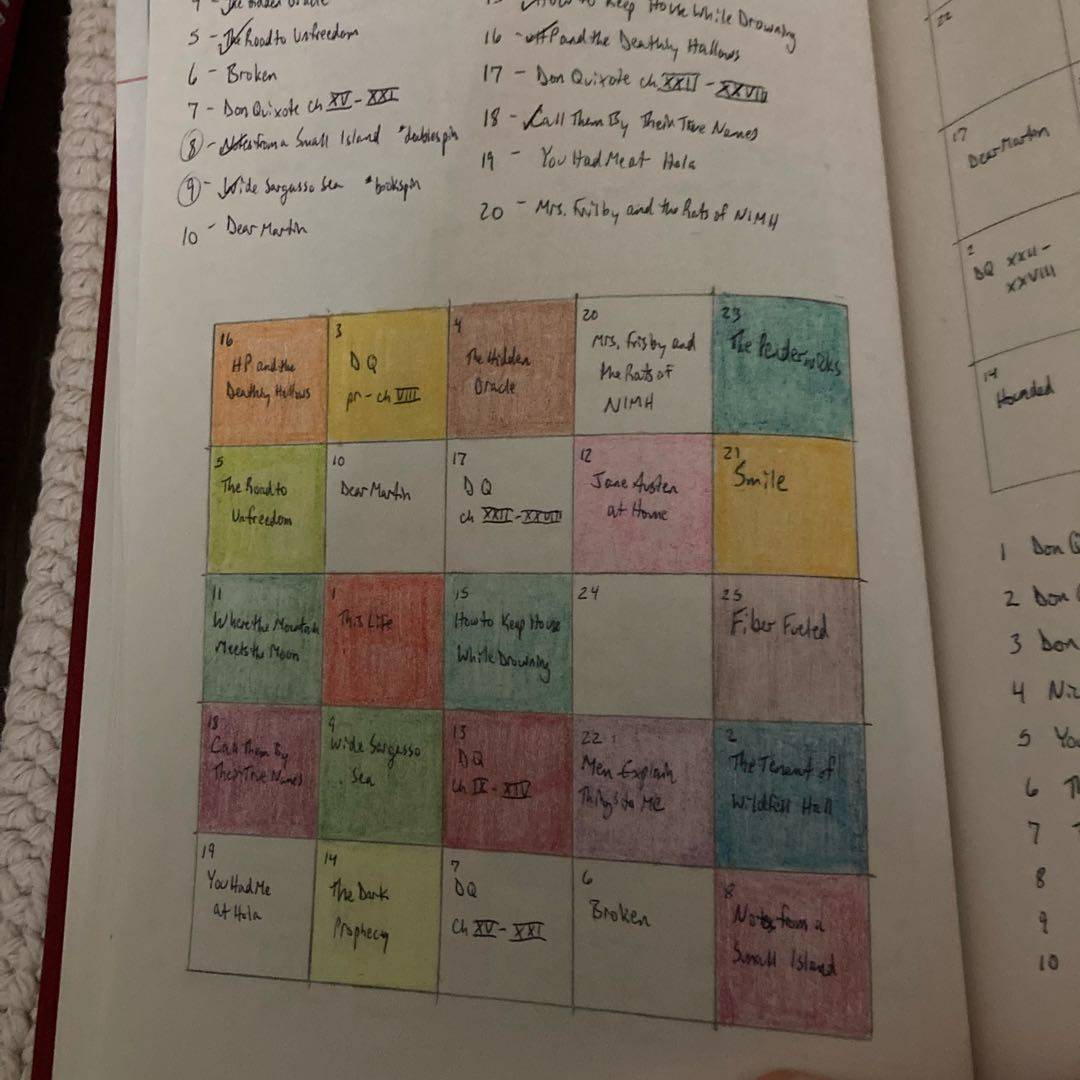 4 - The Hidden Oracle
5 - The Road to Unfreedom
6 - Broken
7 - Don Quixote ch XV - XXI
8 - Notes from a Small Island *doublespin
9 - Wide Sargasso Sea *bookspin
10 - Dear Martin
15 - How to Keep House While Drowning
16 - HP and the Deathly Hallows
17 - Don Quixote ch XXII - XXVIII
18 - Call Them By Their True Names
19 - You Had Me at Hola
20 - Mrs. Frisby and the Rats of NIMH
16
HP and the
Deathly Hallows
3
DQ
pr - ch VIII
4
The Hidden
Oracle
20
Mrs. Frisby and
the Rats of
NIMH
23
The Penderwicks
5
The Road to
Unfreedom
10
Dear Martin
17
DQ
ch XXII - XXVIII
12
Jane Austen
at Home
21
Smile
11
Where the Mountain
Meets the Moon
1
This Life
15
How to Keep House
While Drowning
24
25
Fiber Fueled
18
Call Them By
Their True Names
9
Wide Sargasso
Sea
13
DQ
ch IX - XIV
22
Men Explain
Things to Me
2
The Tenant of
Wildfell Hall
19
You Had Me
at Hola
14
The Dark
Prophecy
7
DQ
ch XV - XXI
6
Broken
8
Notes from a
Small Island
22
17
Dear Martin
2
DQ XXII -
XXVIII
14
Hounded
1 Don
2 Don
3 Don
4
5
6
7
8
9
10